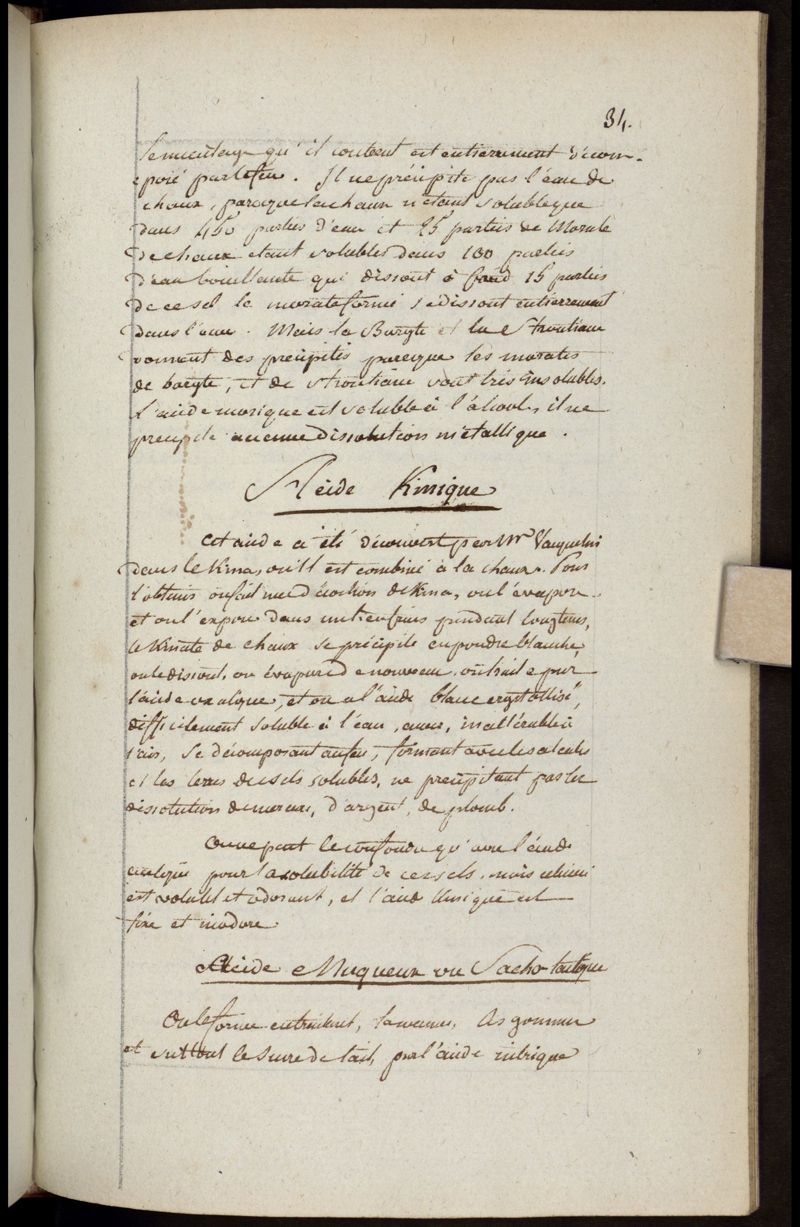 34.
le mucilage qu'il contient est entierement decom-
posé par le feu. Il ne précipite pas l'eau de
chaux, parceque la chaux n'etant soluble que
dans 450 parties d'eau et 25 parties de Morate
de chaux etant solubles dans 100 parties
d'eau bouillante qui dissout à froid 15 parties
de ce sel le morate formé se dissout entierrement
dans l'eau. Mais la Baryte et la Strontiane
forment des précipités parceque les morates
de baryte, et de strontiane sont très insolubles.
L'acide morique est soluble à l'alcool, il ne
precipite aucune dissolution métallique.
Acide Kinique
Cet acide a été découvert par Mr Vauquelin
dans le Kina, où il est combiné à la chaux. Pour
l'obtenir on fait une décoction de Kina, on l'évapore
et on l'expose dans un lieu frais pendant longtems,
le Kinate de chaux se précipite en poudre blanche,
on le dissout, on évapore de nouveau, on traite par
l'acide oxalique, et on a l'acide blanc crystallisé,
difficilement soluble à l'eau, amer, inalterable à
l'air, se décomposant au feu, formant avec les alcalis
et les terres des sels solubles, ne precipitant pas les
dissolutions de mercure, d'argent, de plomb.
On ne peut le confondre qu'avec l'acide
acétique pour la solubilité de ces sels, mais celui ci
est volatil et odorant, et l'acide Kinique est
fixe et inodore
Acide Muqueux ou Sacho-lactique
On le forme en traitant, les gommes
et surtout le sucre de lait, par l'acide nitrique